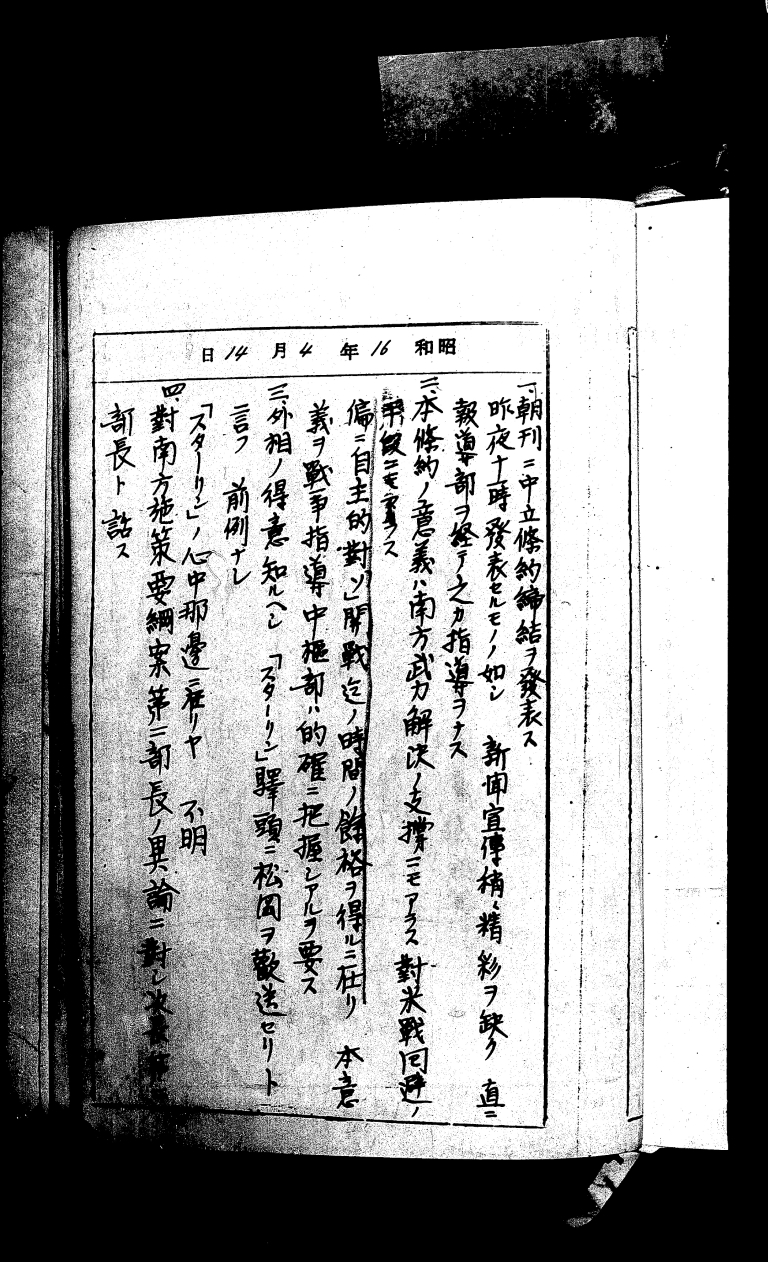 昭和16年4月14日
一、朝刊ニ中立條約締結ヲ發表ス
昨夜十一時發表セルモノノ如シ 新聞宣傳稍〻精彩ヲ缺ク 直ニ
報導部ヲ経テ之カ指導ヲナス
二、本條約ノ意義ハ南方武力解決ノ支撐ニモアラス 對米戰回避ノ
手段ニモ非ス
偏ニ自主的對「ソ」開戰迄ノ時間ノ餘裕ヲ得ルニ在リ 本意
義ヲ戰争指導中樞部ハ的確ニ把握シアルヲ要ス
三、外相ノ得意知ルヘシ 「スターリン」驛頭ニ松岡ヲ歡送セリト
言フ 前例ナシ
「スターリン」ノ心中那邊ニ在リヤ 不明
四、對南方施策要綱案第二部長ノ異論ニ對シ次長第
部長ト話ス